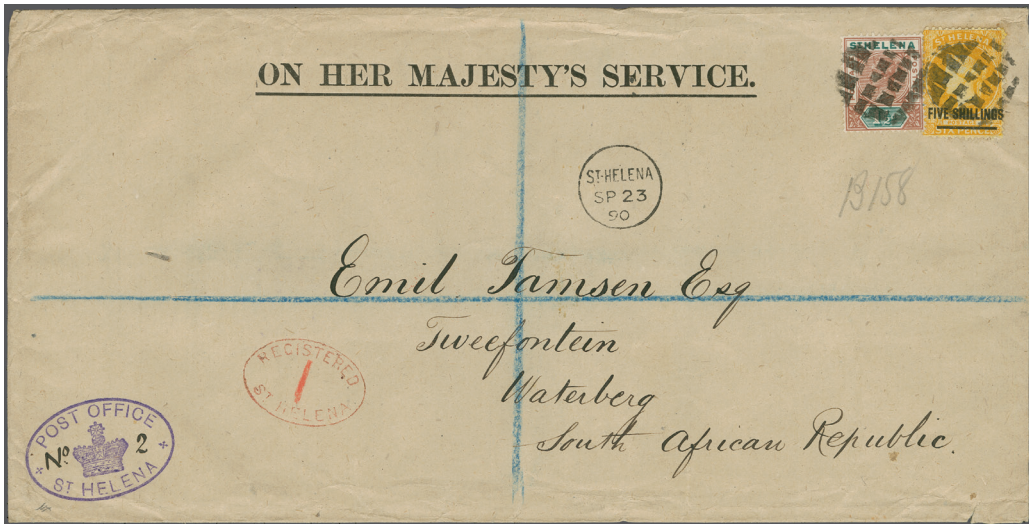 ON HER MAJESTY'S SERVICE.
ST HELENA
ST HELENA
FIVE SHILLINGS
SIX PENCE
ST. HELENA
SP 23
90
B158
Emil Tamsen Esq
Tweefontein
Waterberg
South African Republic.
REGISTERED
1
ST HELENA.
POST OFFICE
No. 2
ST HELENA